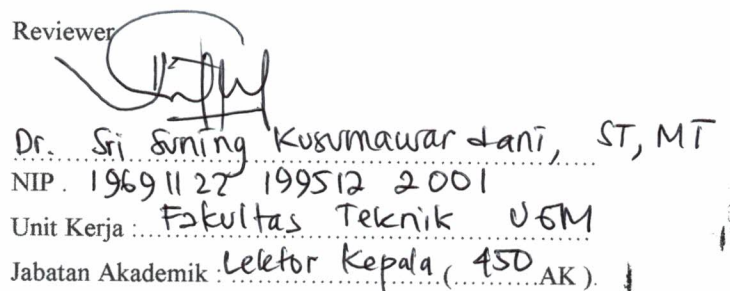 Reviewer
Dr. Sri Suning Kusumawardani, ST, MT
NIP. 19691127 199512 2001
Unit Kerja : Fakultas Teknik UGM
Jabatan Akademik : Lektor Kepala ( 450 AK ).